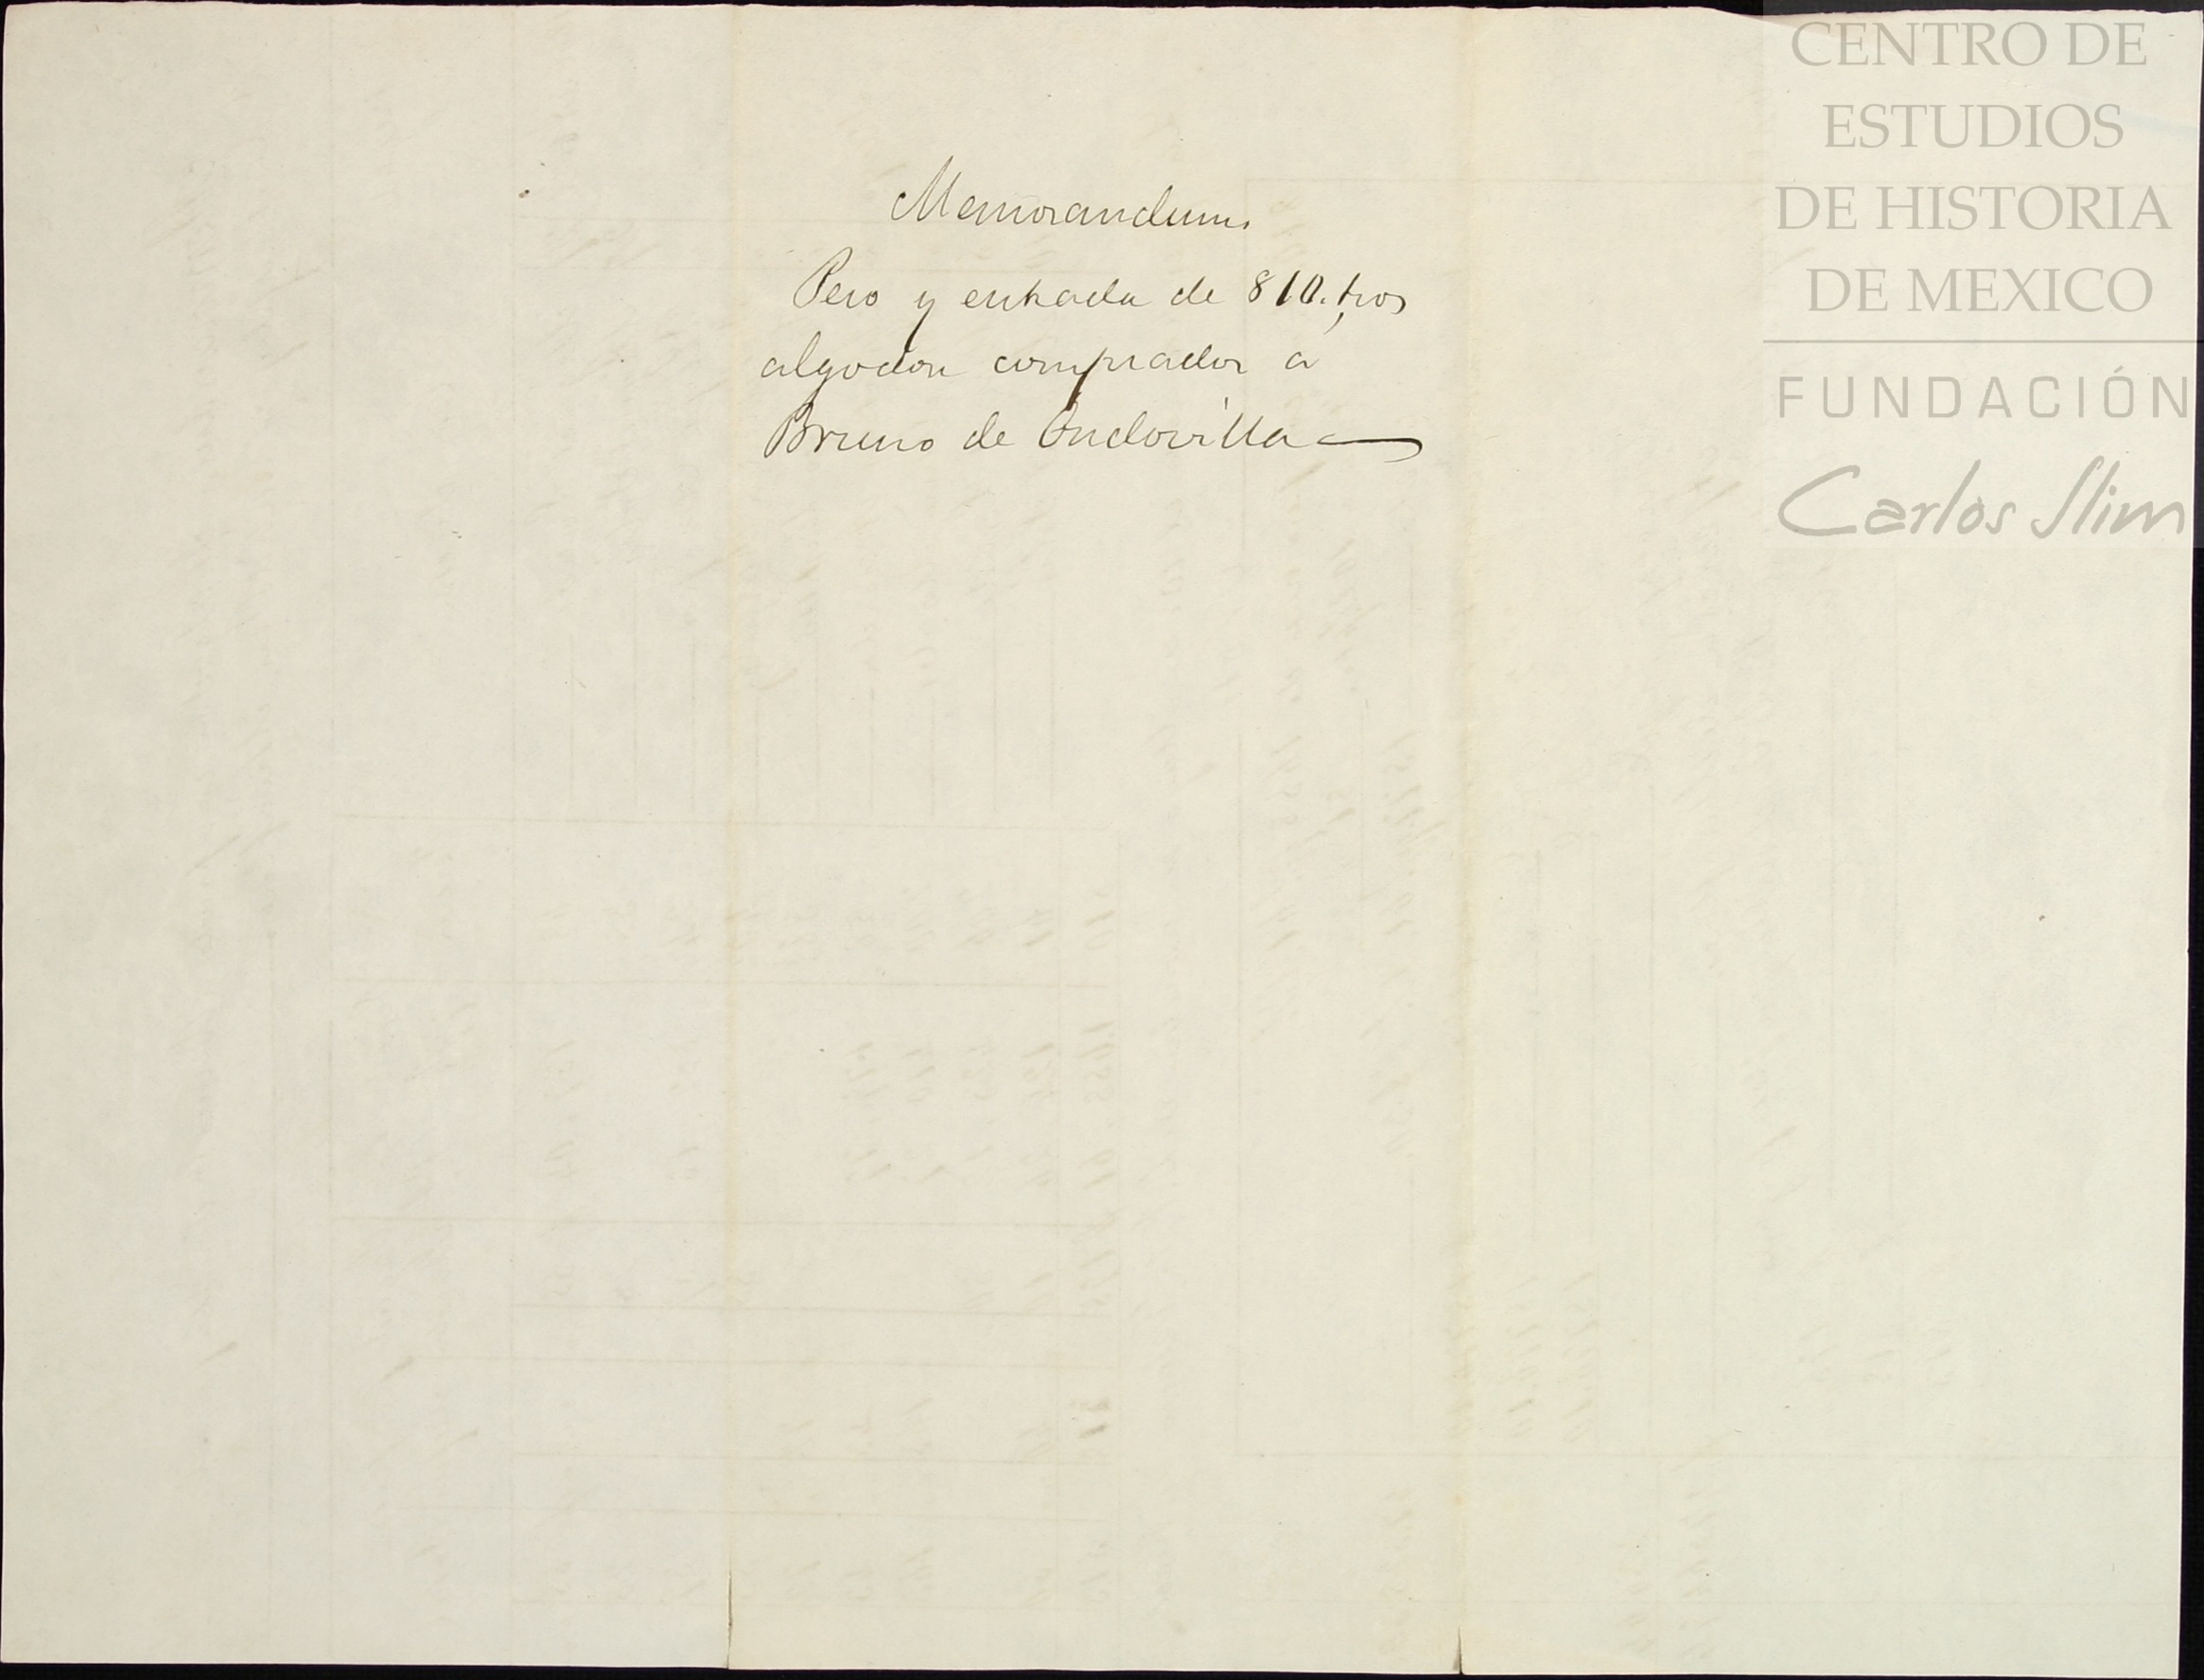 Memorandum
Peso y entrada de 810. tros
algodon comprados a
Bruno de Ondovilla
CENTRO DE
ESTUDIOS
DE HISTORIA
DE MEXICO
FUNDACIÓN
Carlos Slim